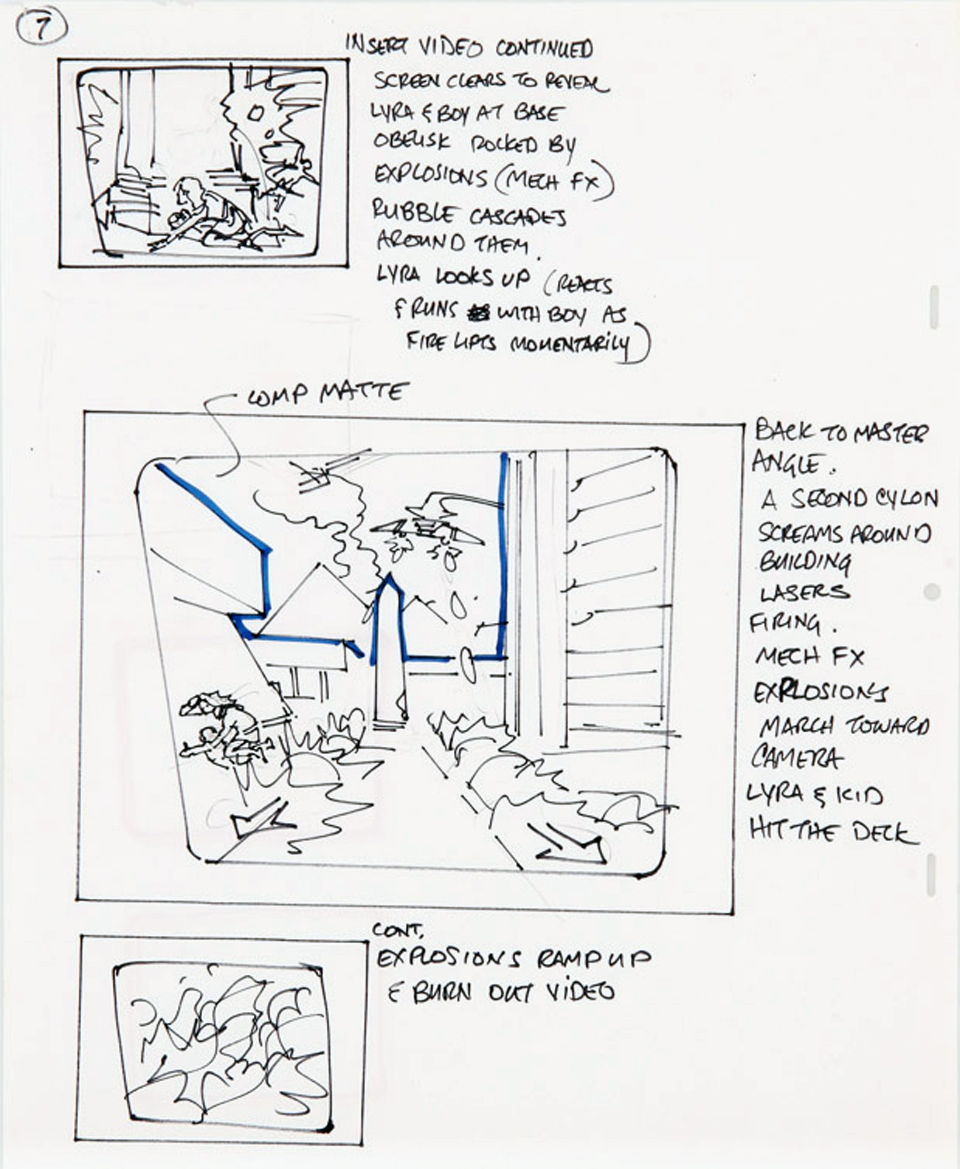 7
INSERT VIDEO CONTINUED
SCREEN CLEARS TO REVEAL
LYRA & BOY AT BASE
OBELISK ROCKED BY
EXPLOSIONS (MECH FX)
RUBBLE CASCADES
AROUND THEM.
LYRA LOOKS UP (REACTS
& RUNS WITH BOY AS
FIRE LIFTS MOMENTARILY)
COMP MATTE
BACK TO MASTER
ANGLE.
A SECOND CYLON
SCREAMS AROUND
BUILDING
LASERS
FIRING.
MECH FX
EXPLOSIONS
MARCH TOWARD
CAMERA
LYRA & KID
HIT THE DECK
CONT.
EXPLOSIONS RAMP UP
& BURN OUT VIDEO